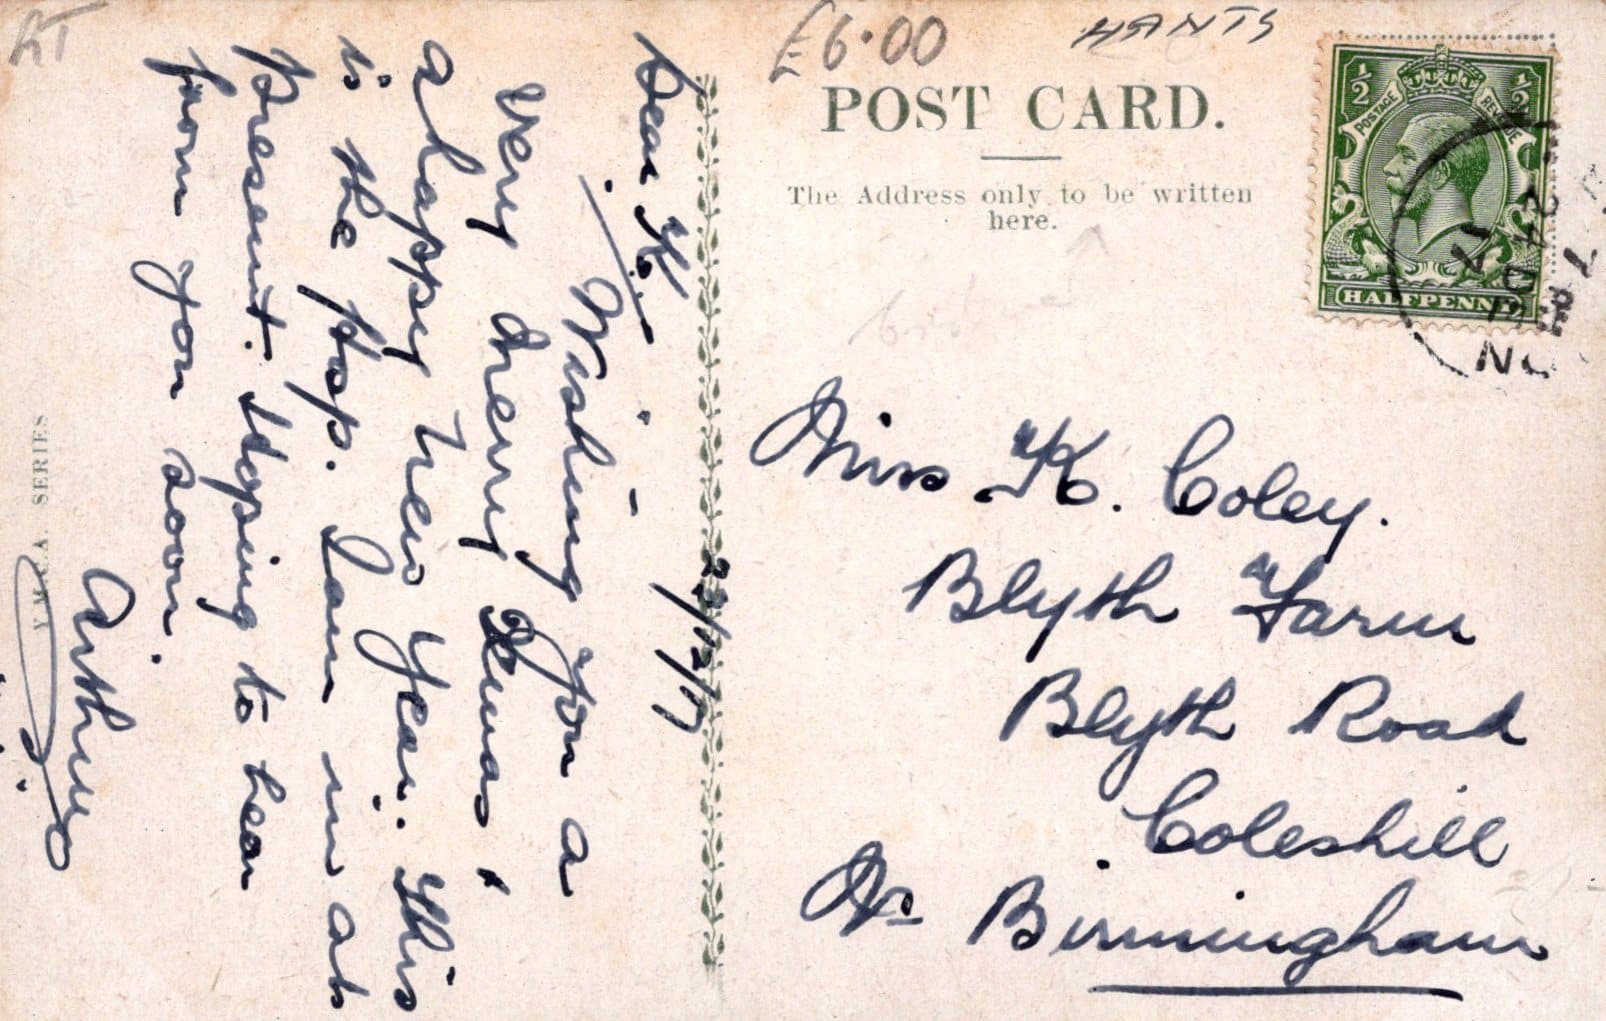 £6.00
HANTS
POST CARD.
The Address only to be written
here.
½ ½
POSTAGE REVENUE
HALFPENNY
24 DE
17
Miss K. Coley.
Blyth Farm
Blyth Road
Coleshill
Nr Birmingham
23/12/17
Dear K.
Wishing you a
Very Merry Xmas &
a happy New Year. This
is the Hosp. I am in at
Present. Hoping to hear
from you soon.
Arthur
Y.M.C.A. SERIES